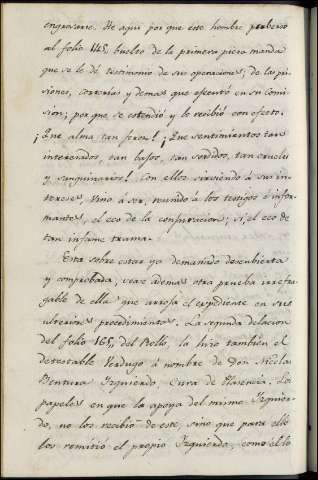 engrosarse. He aqui por que este hombre perverso
al folio 445, buelto de la primera pieza manda
que se le dé testimonio de sus operaciones; de las pri-
siones, correrias y demas que ejecutó en su comi-
sion; por que se estendió y lo recibió con efecto.
¡Que alma tan feroz! ¡Que sentimientos tan
interesados, tan bajos, tan sordidos, tan crueles
y sanguinarios! Con ellos sirviendo á sus in-
tereses, vino á ser, unido á los testigos é infor-
mantes, el eco de la conspiracion; si, el eco de
tan infame trama.
Esta sobre estar ya demasiado descubierta
y comprobada, vease ademas otra prueba irrefra-
gable de ella que arroja el expediente en sus
ulteriores procedimientos. La segunda delacion
del folio 165, del Bello, la hizo tambien el
detestable Verdugo á nombre de Don Nicolas
Bentura Izquierdo Cura de Plasencia. Los
papeles en que la apoya del mismo Izquier-
do, no los recibió de este, sino que para ello
los remitió el propio Izquierdo, como el lo